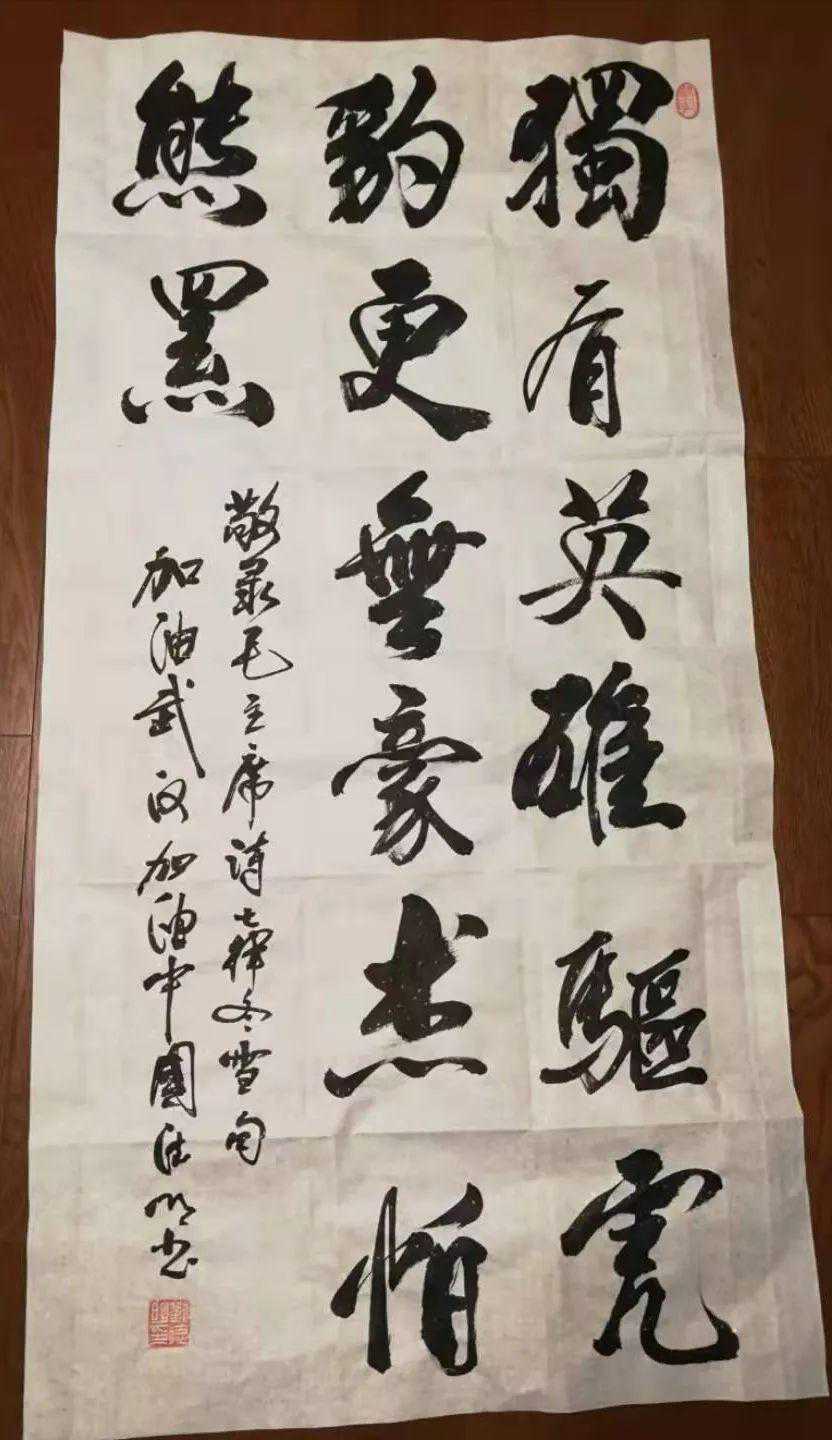 獨有英雄驅虎
豹更無豪杰怕
熊羆
敬录毛主席诗七律冬雪句
加油武汉加油中國